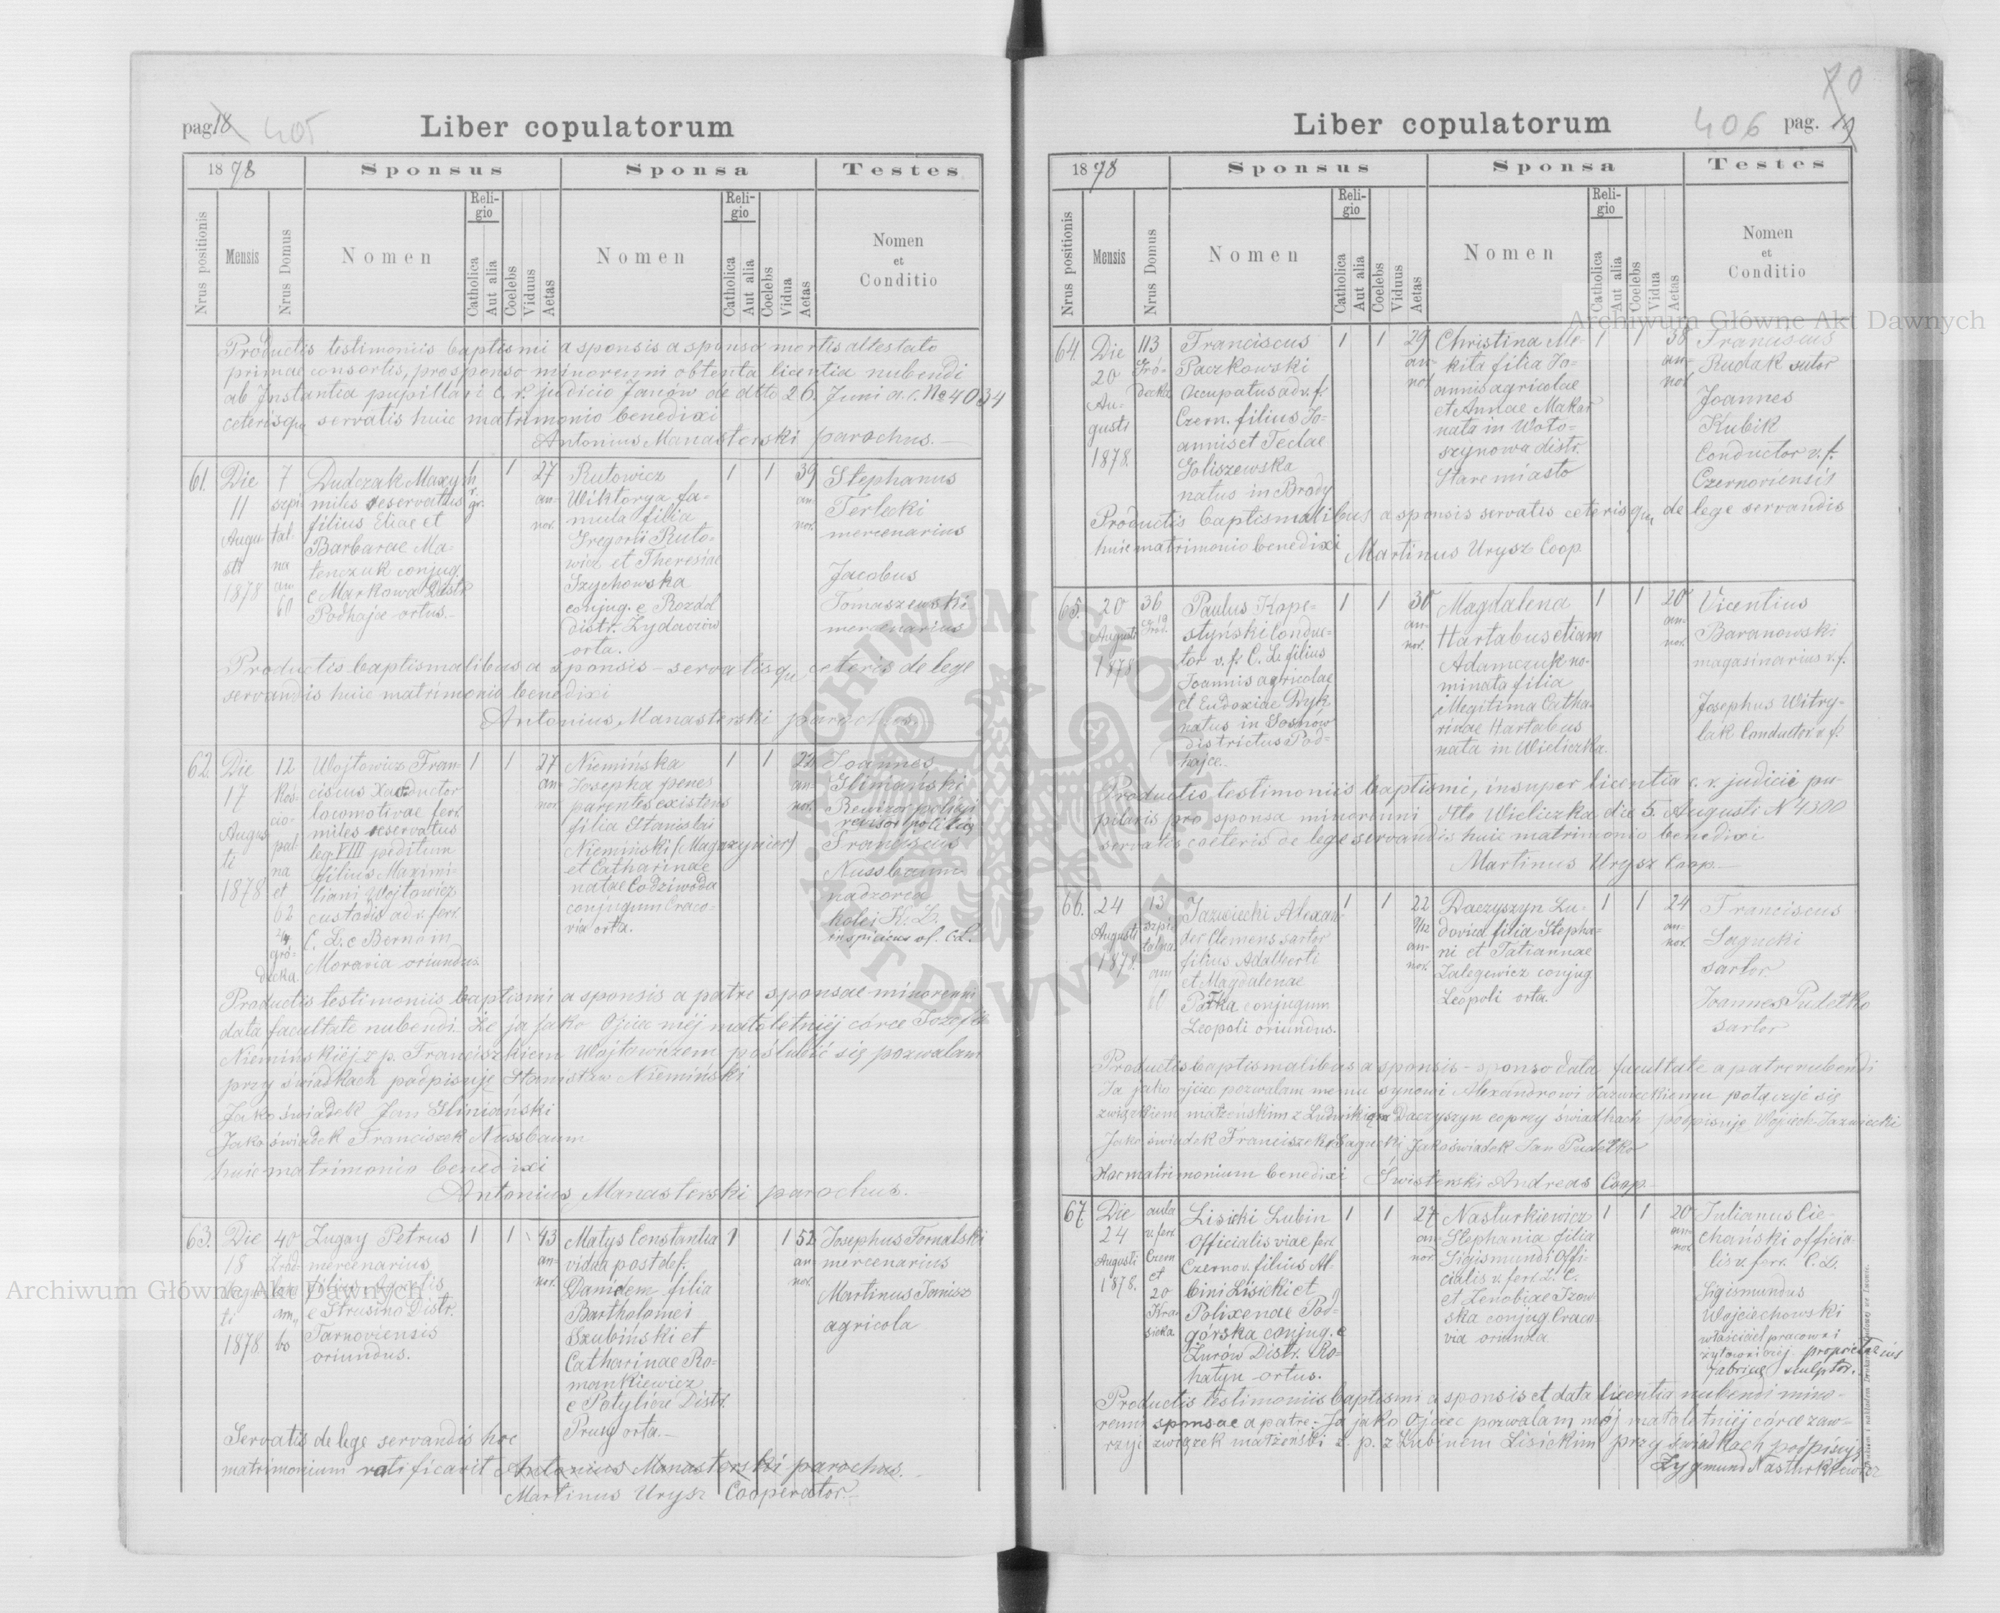 pag. 18 405
Liber copulatorum
1878
Sponsus
Sponsa
Testes
Nrus positionis
Mensis
Nrus Domus
Nomen
Religio
Catholica
Aut alia
Coelebs
Viduus
Aetas
Nomen
Religio
Catholica
Aut alia
Coelebs
Vidua
Aetas
Nomen
et
Conditio
Productis testimoniis baptismi a sponsis a sponso mortis attestato
primae consortis, pro sponso minorenni obtenta licentia nubendi
ab Instantia pupillari c. r. judicio Janów de dtto 26. Juni a. c. No 4034
ceterisque servatis huic matrimonio benedixi
Antonius Manasterski parochus.
61.
Die
11
Augu
sti
1878
7
szpi
tal
na
am
60
Dudczak Maxy
miles reservatus
filius Eliae et
Barbarae Ma-
tenczuk conjug.
e Markowa Distr.
Podhajce ortus.
r.
gr.
1
27
an-
nor.
Rutowicz
Wiktorya fa-
mula filia
Gregorii Ruto-
wicz et Theresiae
Szychowska
conjug. e Rozdol
distr. Zydaczów
orta.
1
1
39
an-
nor.
Stephanus
Terlecki
mercenarius
Jacobus
Tomaszewski
mercenarius
Productis baptismalibus a sponsis - servatisque ceteris de lege
servandis huic matrimonio benedixi
Antonius Manasterski parochus.
62.
Die
17
Augus
ti
1878
12
Koś-
cio-
pal-
na
et
62
gró-
decka
Wojtowicz Fran
ciscus Conductor
locomotivae ferr.
miles reservatus
leg. VIII peditum
filius Maximi-
liani Wojtowicz
custodis ad v. ferr.
C. L. e Berno in
Moravia oriundus
1
1
27
an-
nor.
Niemińska
Josepha penes
parentes existens
filia Stanislai
Niemiński (Magazynier)
et Catharinae
natae Codziwoda
conjugum Craco-
via orta.
1
1
22
an-
nor.
Joannes
Gliniański
Rewizor policyi
revisor politiae
Franciscus
Nussbaum
nadzorca
kolei K. L.
inspicicus vf. C.L.
Productis testimoniis baptismi a sponsis a patre sponsae minorenni
data facultate nubendi. Że ja jako Ojciec méj małoletniéj córce Józefie
Niemińskiéj z p. Franciszkiem Wojtowiczem poślubić się pozwalam
przy świadkach podpisuję Stanisław Niemiński
Jako świadek Jan Gliniański
Jako świadek Franciszek Nussbaum
huic matrimonio benedixi
Antonius Manasterski parochus.
63.
Die
18
Augus
ti
1878
40
am.
bo
Zugay Petrus
mercenarius
filius Agnetis
e Strusina Distr.
Tarnoviensis
oriundus.
1
1
43
an-
nor.
Matys Constantia
vidua post def.
Danielem filia
Bartholomei
Szubiński et
Catharinae Ro-
mankiewicz
e Potylicze Distr.
Prusy orta.
1
1
52
an-
nor.
Josephus Tornalski
mercenarius
Martinus Tomisz
agricola
Servatis de lege servandis hoc
matrimonium ratificavit Antonius Manasterski parochus.
Martinus Urysz Cooperator.
Archiwum Główne Akt Dawnych
ARCHIWUM GŁÓWNE AKT DAWNYCH
Liber copulatorum
406 pag. 19
1878
Sponsus
Sponsa
Testes
Nrus positionis
Mensis
Nrus Domus
Nomen
Religio
Catholica
Aut alia
Coelebs
Viduus
Aetas
Nomen
Religio
Catholica
Aut alia
Coelebs
Vidua
Aetas
Nomen
et
Conditio
Archiwum Główne Akt Dawnych
64.
Die
20
Au-
gusti
1878.
113
Gró-
decka
Franciscus
Paczkowski
Occupatus ad v. f.
Czern. filius Jo-
annis et Teclae
Goliszewska
natus in Brody
1
1
29
an-
nor.
Christina Me-
kita filia Jo-
annis agricolae
et Annae Makar
nata in Woło-
szynowa distr.
Stare miasto
1
1
38
an-
nor.
Franciscus
Rudak sutor
Joannes
Kubik
Conductor v. f.
Czernoviensis
Productis baptismalibus a sponsis servatis ceterisque de lege servandis
huic matrimonio benedixi Martinus Urysz Coop
65.
20
Augusti
1878
36
Paulus Kope-
styński Conduc-
tor v. f. C. L. filius
Joannis agricolae
et Eudoxiae Dryk
natus in Sosnow
districtus Pod-
hajce.
1
1
30
an-
nor.
Magdalena
Hartabus etiam
Adamczuk no-
minata filia
illegitima Catha-
rinae Hartabus
nata in Wieliczka.
1
1
20
an-
nor.
Vicentius
Baranowski
magasinarius v. f.
Josephus Witry-
lak Conductor v. f.
Productis testimoniis baptismi, insuper licentia c. r. judicii pu-
pilaris pro sponsa minorenni dtto Wieliczka die 5. Augusti N 4300
servatis coeteris de lege servandis huic matrimonio benedixi
Martinus Urysz Coop.
66.
24
Augusti
1878.
13
szpi-
talna
Jazwiecki Alexan-
der Clemens sartor
filius Adalberti
et Magdalenae
Patka conjugum
Leopoli oriundus.
1
1
22
an-
nor.
Daczyszyn Lu-
dovica filia Stepha-
ni et Tatiannae
Zalegewicz conjug.
Leopoli orta.
1
1
24
an-
nor.
Franciscus
Sagucki
sartor
Joannes Pudełko
sartor
Productis baptismalibus a sponsis - sponso data facultate a patre nubendi
Ja jako ojciec pozwalam memu synowi Alexandrowi Jazwieckiemu połączyć się
związkiem małżeńskim z Ludwiką Daczyszyn co przy świadkach podpisuję Wojciech Jazwiecki
Jako świadek Franciszek Sagucki Jako świadek Jan Pudełko
Hoc matrimonium benedixi Świsterski Andreas Coop.
67.
Die
24
Augusti
1878.
aula
v. ferr.
Czern
et
20
Kra-
sicka
Lisicki Lubin
Officialis viae ferr.
Czernov. filius Al-
bini Lisicki et
Polixenae Pod-
górska conjug. e
Żurów Distr. Ro-
hatyn ortus.
1
1
27
an-
nor.
Nasturkiewicz
Stephania filia
Sigismundi Offi-
cialis v. ferr. L. C.
et Zenobiae Szow-
ska conjug. Craco-
via oriunda
1
1
20
an-
nor.
Julianus Cie-
chański officia-
lis v. ferr. C. L.
Sigismundus
Wojciechowski
właściciel pracowni
proprietarius
fabricae sculptor.
Productis testimoniis baptismi a sponsis et data licentia nubendi mino-
renni sponsae a patre: Ja jako Ojciec pozwalam mój małoletniéj córce zaw-
rzyć związek małżeński z p. z Lubinem Lisickim przy świadkach podpisuję
Zygmund Nasturkiewicz